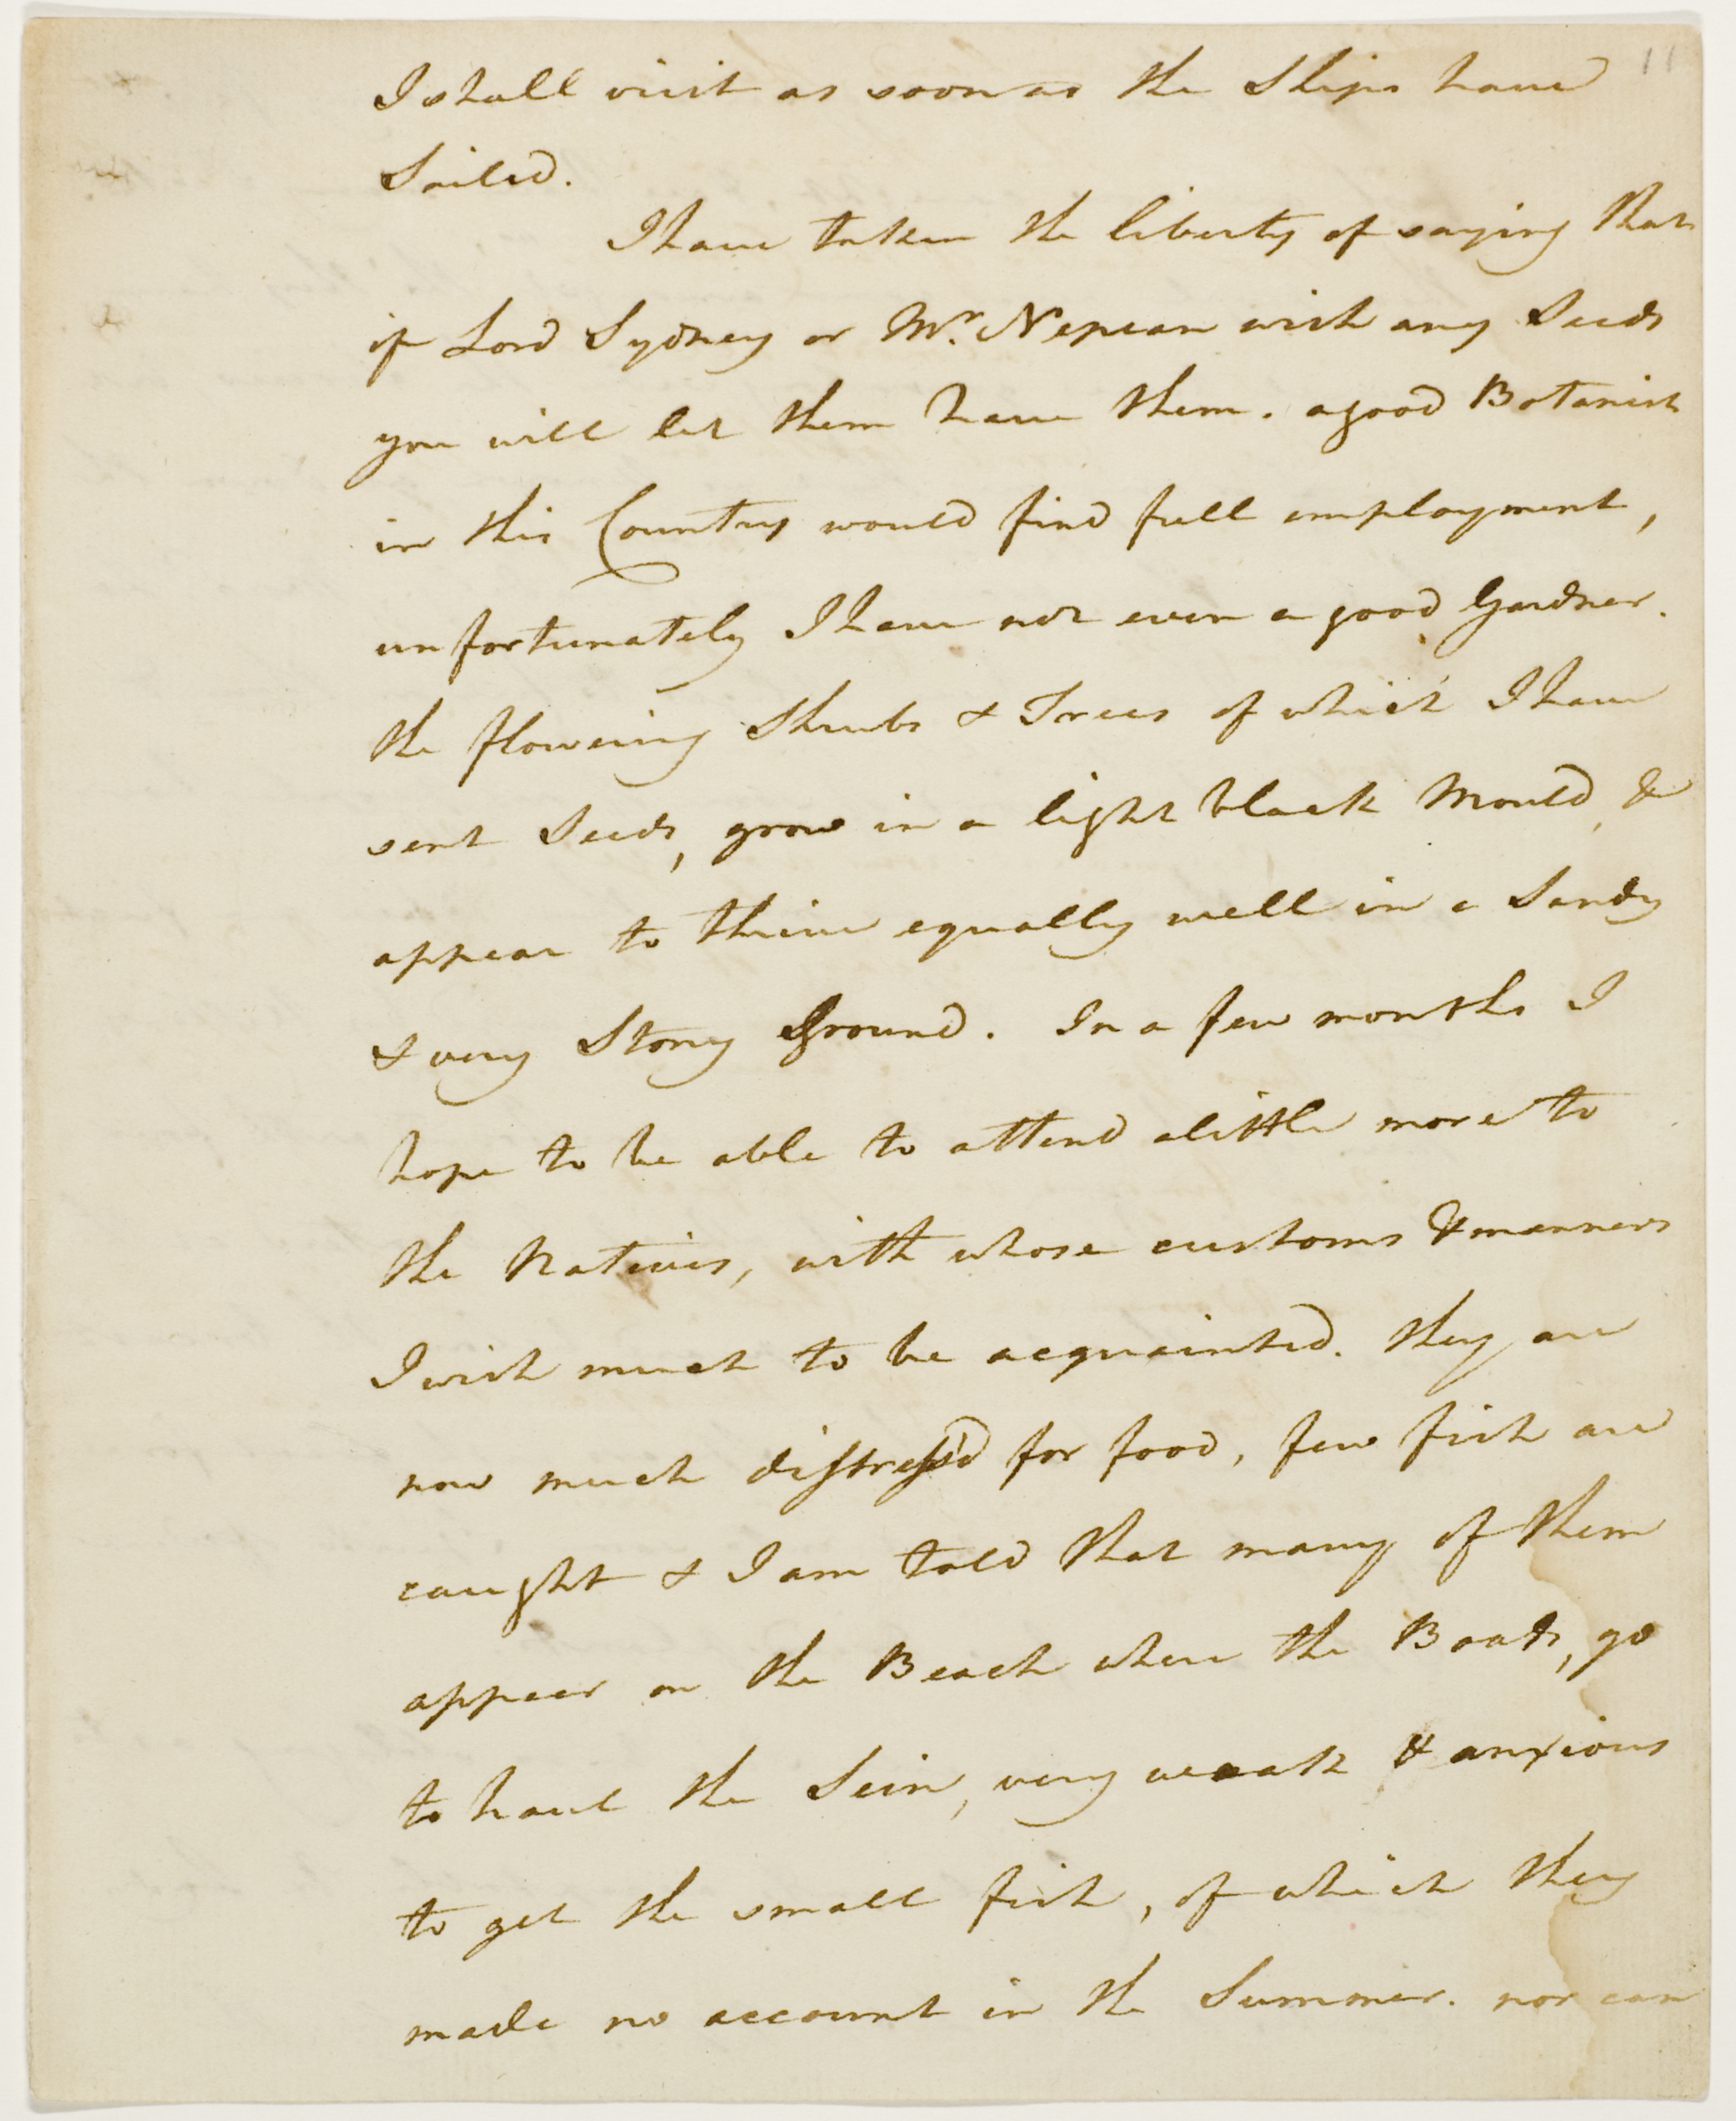 11
I shall visit as soon as the Ships have
Sailed.
I have taken the liberty of saying that
if Lord Sydney or Mr. Nepean wish any Seeds
you will let them have them. a good Botanist
in this Country would find full employment,
unfortunately I have not even a good Gardner.
the flowering Shrubs & Trees of which I have
sent Seeds, grow in a light black Mould, &
appear to thrive equally well in a Sandy
& very Stony Ground. In a few months I
hope to be able to attend a little more to
the Natives, with whose customs & manners
I wish much to be acquainted. they are
now much distress'd for food, few fish are
caught & I am told that many of them
appear on the Beach where the Boats, go
to haul the Sein, very weak & anxious
to get the small fish, of which they
made no account in the Summer. nor can